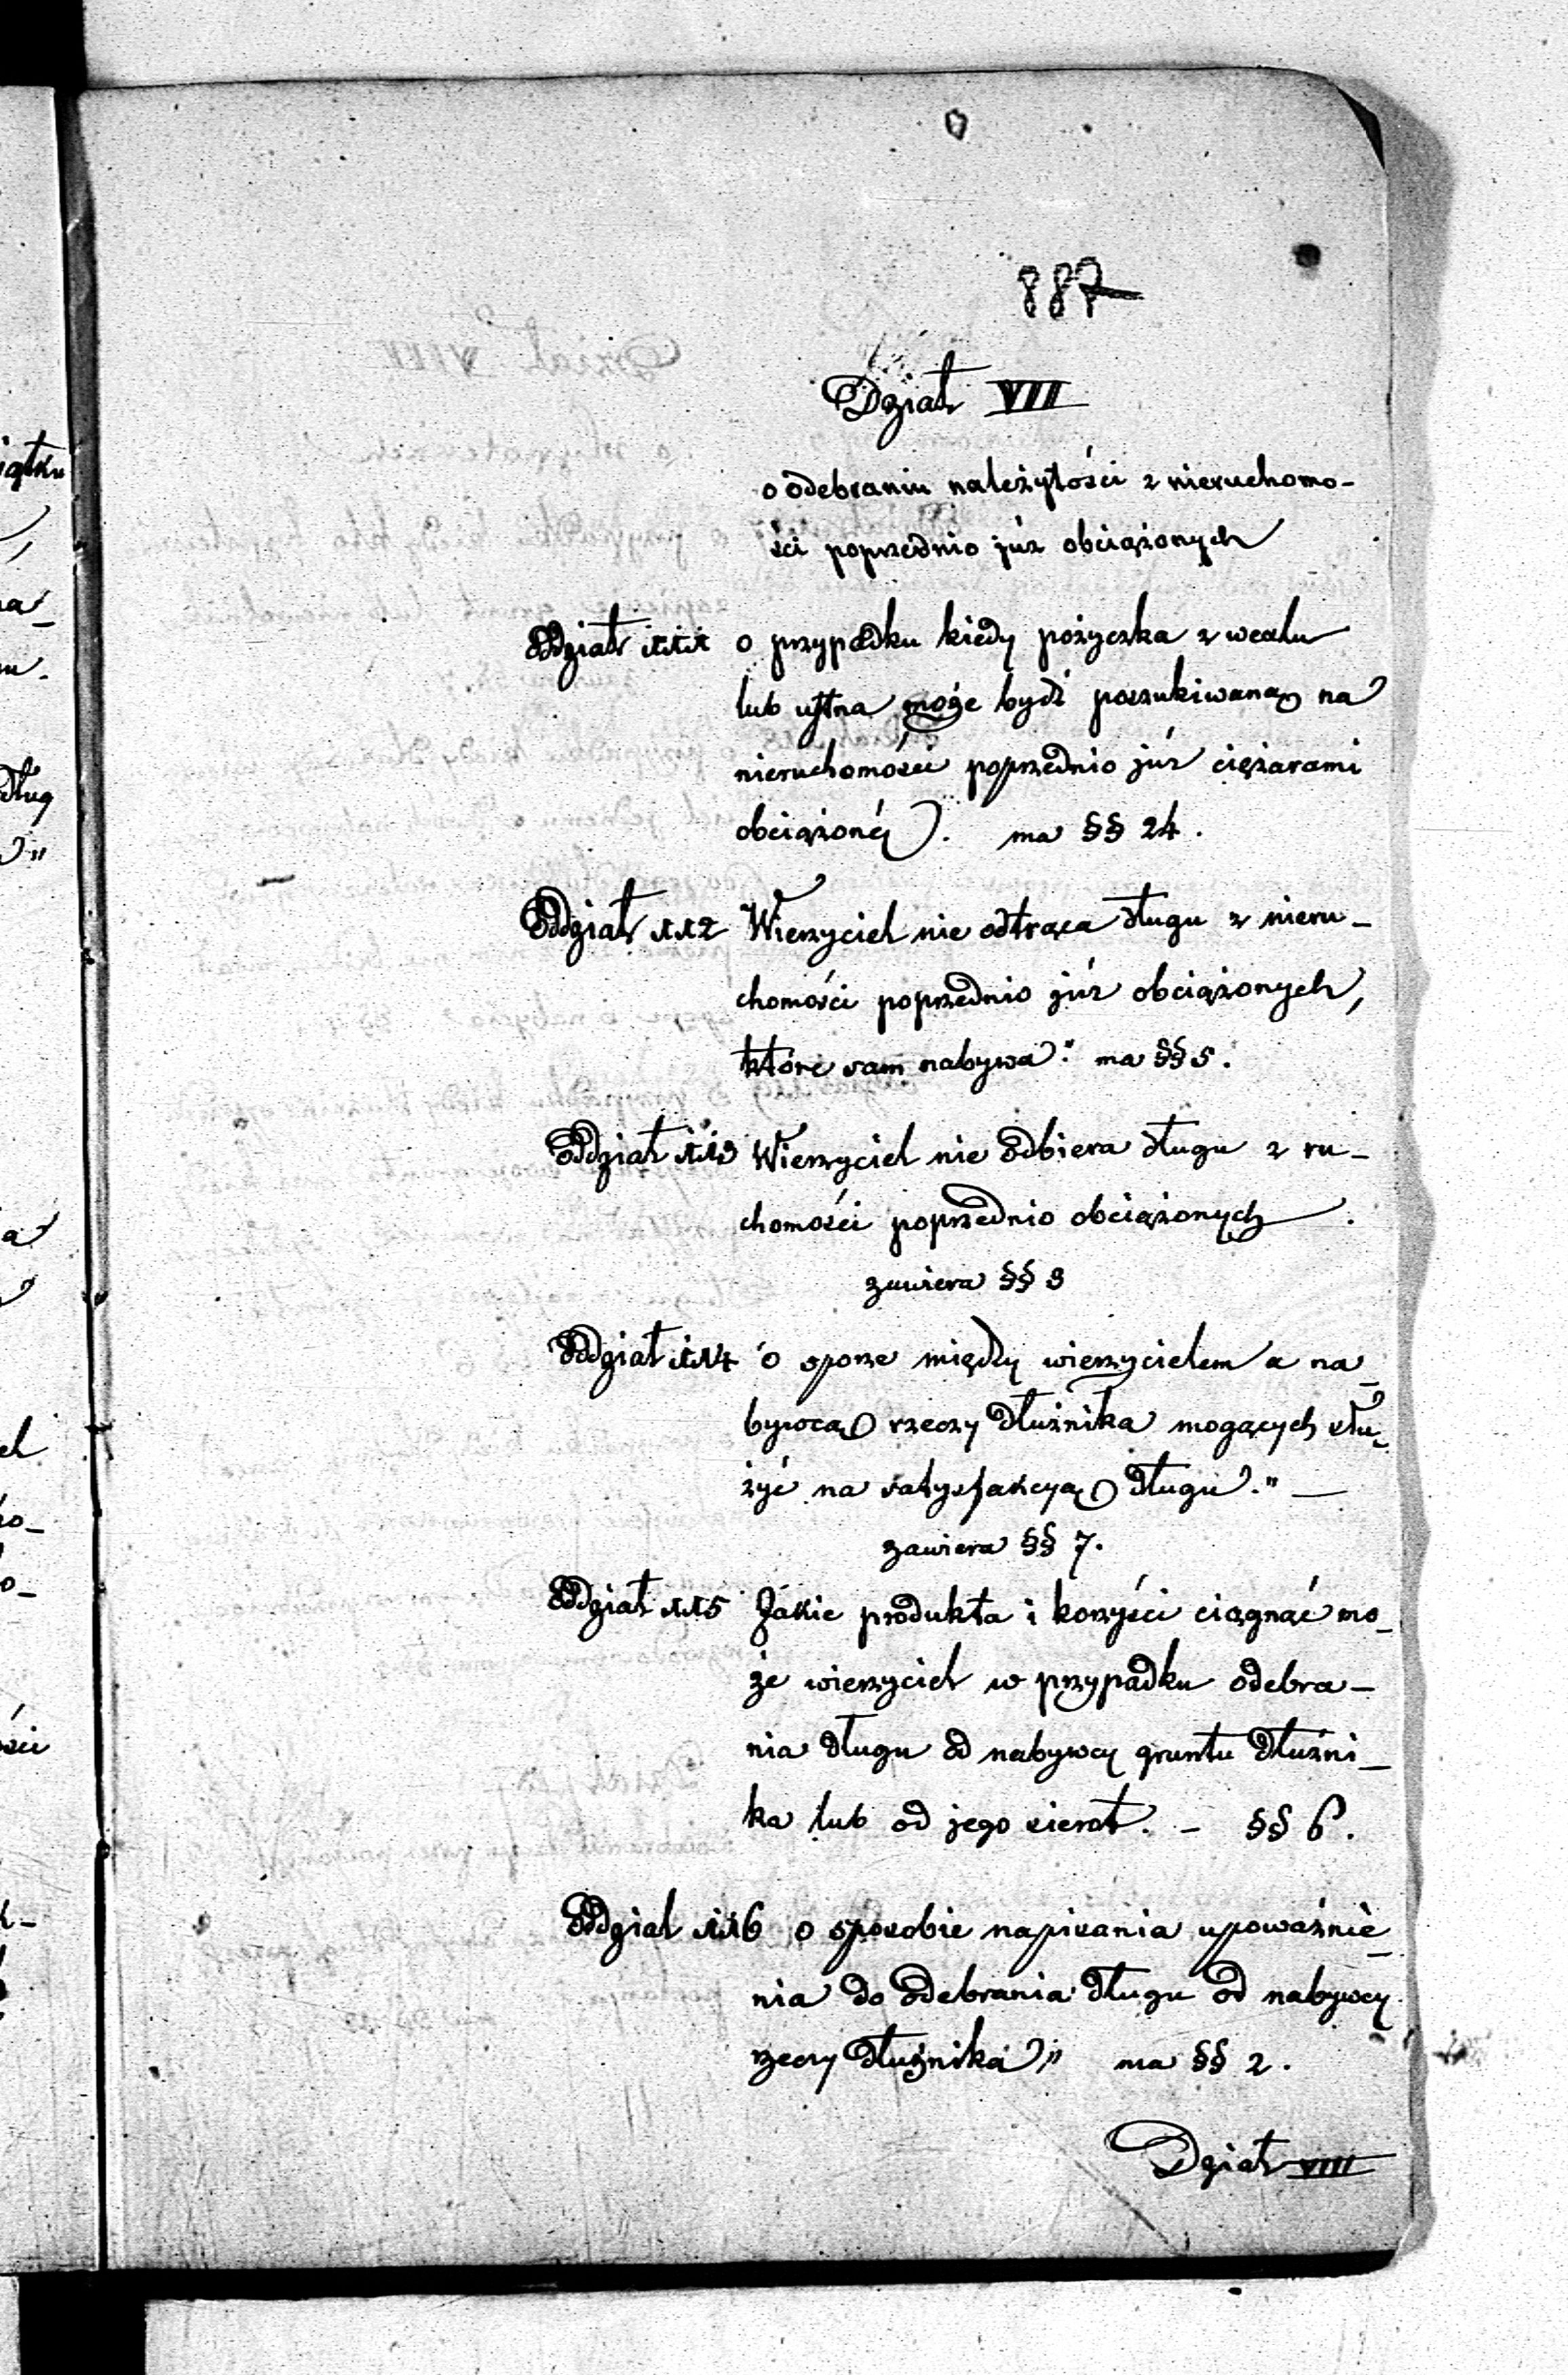 887
Dział VII
o odebraniu należytości z nieruchomo-
ści poprzednio już obciążonych
Oddział 111 o przypadku kiedy pożyczka z wexlu
lub ustna może bydź poszukiwaną na
nieruchomości poprzednio już ciężarami
obciążonéy. ma §§ 24.
Oddział 112 Wierzyciel nie odtrąca długu z nieru-
chomości poprzednio już obciążonych,
które sam nabywa." ma §§ 5.
Oddział 113 Wierzyciel nie odbiera długu z ru-
chomości poprzednio obciążonych.
zawiera §§ 3
Oddział 114 o sporze między wierzycielem a na-
bywcą rzeczy dłużnika mogących słu-
żyć na satysfakcyą długu." —
zawiera §§ 7.
Oddział 115 Jakie produkta i korzyści ciągnąć mo-
że wierzyciel w przypadku odebra-
nia długu od nabywcy gruntu dłużni-
ka lub od jego sierot. - §§ 6.
Oddział 116 o sposobie napisania upoważnie-
nia do odebrania długu od nabywcy
rzeczy dłużnika" ma §§ 2.
Dział VIII